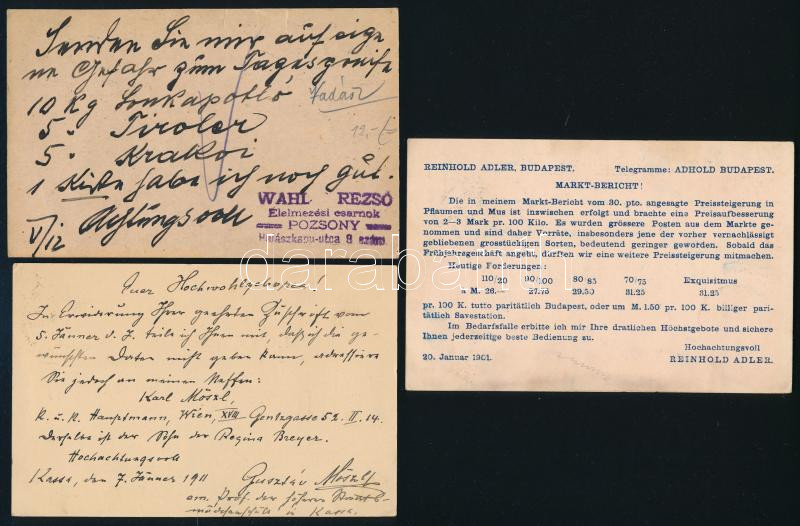 Senden Sie mir auf eige
ne Gefahr zum Tagespreise
10 Kg
Vadász
5 " Tiroler
12.-
5 " Krakoi
1 Kiste habe ich noch gut.
V/12 Achtungsvoll
WAHL REZSŐ
Élelmezési csarnok
POZSONY
Halászkapu-utca 9 szám.
Euer Hochwohlgeboren!
In Erwiderung Ihrer geehrten Zuschrift vom
5. Jänner d. J. teile ich Ihnen mit, daß ich die ge-
wünschten Daten nicht geben kann, adressiere
Sie jedoch an meinen Neffen:
Karl Möszl,
k. u. k. Hauptmann, Wien, XVIII Gentzgasse 52. II. 14.
Derselbe ist der Sohn der Regina Breyer.
Hochachtungsvoll
Kassa, den 7. Jänner 1911 Gusztáv Möszl
em. Prof. der höheren Staats-
mädchenschule in Kassa.
REINHOLD ADLER, BUDAPEST. Telegramme: ADHOLD BUDAPEST.
MARKT-BERICHT!
Die in meinem Markt-Bericht vom 30. pto. angesagte Preissteigerung in
Pflaumen und Mus ist inzwischen erfolgt und brachte eine Preisaufbesserung
von 2—3 Mark pr. 100 Kilo. Es wurden grössere Posten aus dem Markte ge-
nommen und sind daher Verräte, insbesonders jene der vorher vernachlässigt
gebliebenen grosstückigen Sorten, bedeutend geringer geworden. Sobald das
Frühjahrsgeschäft angeht, dürften wir eine weitere Preissteigerung mitmachen.
Heutige Forderungen:
110/20 90/100 80/85 70/75 Exquisitmus
à M. 26.— 27.75 29.50 31.25 31.25
pr. 100 K. tutto paritätlich Budapest, oder um M. 1.50 pr. 100 K. billiger pari-
tätlich Savestation.
Im Bedarfsfalle erbitte ich mir Ihre dratlichen Höchstgebote und sichere
Ihnen jederzeitige beste Bedienung zu.
Hochachtungsvoll
20. Januar 1901. REINHOLD ADLER.
darabanth.com